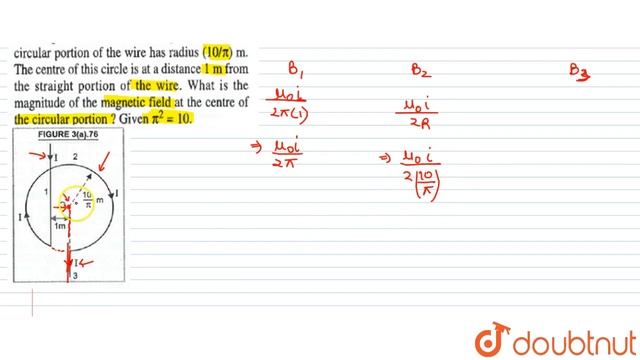 circular portion of the wire has radius (10/π) m.
The centre of this circle is at a distance 1 m from
the straight portion of the wire. What is the
magnitude of the magnetic field at the centre of
the circular portion ? Given π² = 10.
FIGURE 3(a).76
I 2
1 10/π m I
I
1m
I
3
B₁ B₂ B₃
μ₀i/2π(1) μ₀i/2R
⇒ μ₀i/2π ⇒ μ₀i/2(10/π)
doubtnut